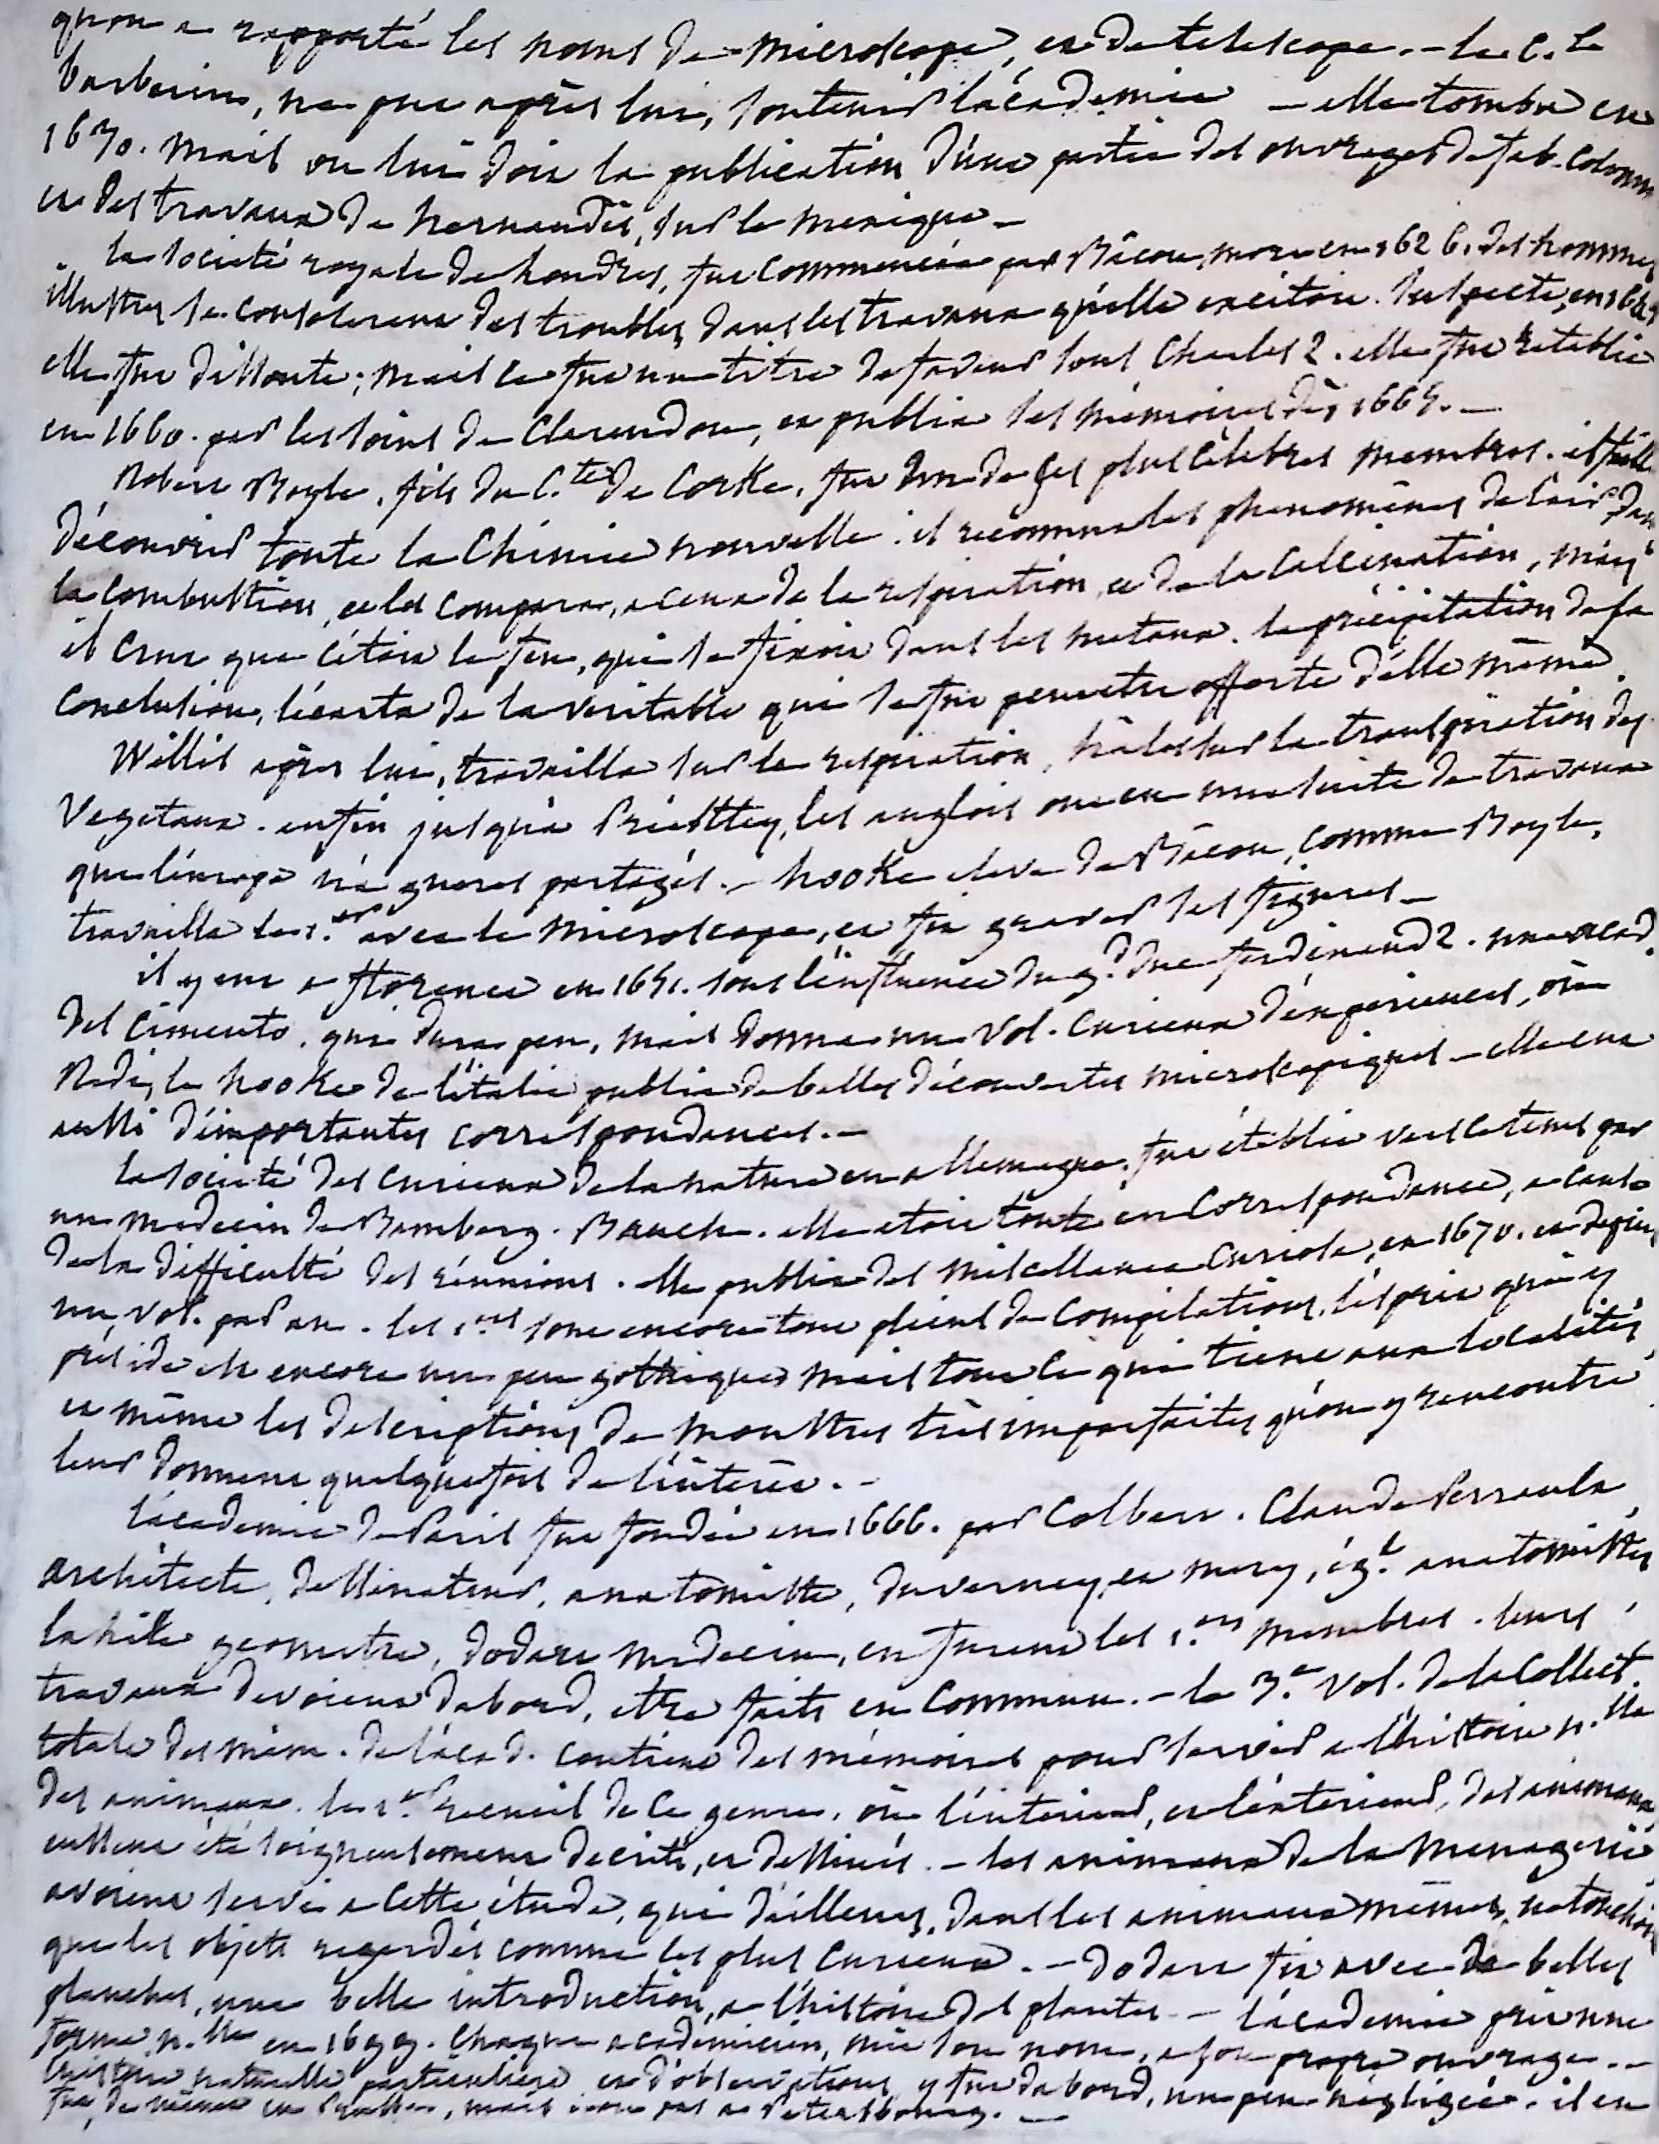 qu'on a rapporté les noms de microscope, et de telescope. – le C.al
barberin, ne put après lui, soutenir l'académie – elle tomba en
1630. mais on lui doit la publication d'une partie des ouvrages de fab. Colonna
et des travaux de hernandès, sur le mexique –
la société royale de Londres, fut commencée par Bâcon, mort en 1626. des hommes
illustres se consolerent des troubles, dans les travaux qu'elle excitoit. suspecte, en
elle fut dissoute; mais ce fut un titre de faveur sous Charles 2. elle fut rétablie
en 1660. par les soins de Clarendon, et publia ses mémoires dès 1665. –
Robert Boyle, fils du C.te de Corke, fut un de ses plus célèbres membres. il
découvrir toute la Chimie nouvelle. il reconnut les phenomènes de l'air dans
la combustion, et les compara, a ceux de la respiration, et de la calcination, mais
il crut que c'étoit le feu, qui se fixoit dans les metaux. la précipitation de sa
conclusion, l'écarta de la véritable qui se fut peutetre offerte d'elle même.
Willis après lui, travailla sur la respiration, hâles sur la transpiration des
Vegetaux. enfin jusqu'à Priestley, les anglois ont eu une suite de travaux
que l'europe n'a gueres partagés. – hooke eleve de Bâcon, comme Boyle,
travailla le 1.er avec le microscope, et fit graver ses figures –
il y eut a florence en 1651. sous l'influence du g.d duc ferdinand 2. une acad.
del cimento, qui dura peu, mais donna un vol. curieux d'expériences, où
Redi, le hooke de l'italie publia de belles découvertes microscopiques – elle eut
aussi d'importantes correspondances. –
la société des curieux de la nature en allemagne, fut établie vers ce tems par
un medecin de Bamberg. Bauch. elle etoit toute en correspondance, a cause
de la difficulté des réunions. elle publia des miscellanea curiosa, en 1670. et depuis
un vol. par an. les 1.ers sont encore tout pleins de compilations, l'esprit qui y
préside est encore un peu gothique mais tout ce qui tient aux localités,
et même les descriptions de monstres très imparfaites qu'on y rencontre
leur donnent quelquefois de l'intérêt. –
l'académie de Paris fut fondée en 1666. par Colbert. Claude Perrault,
architecte, dessinateur, anatomiste, duverney, et mery, ég.t anatomistes
lahire geometre, dodart medecin, en furent les 1.ers membres. leurs
travaux devoient dabord, etre faits en commun. – le 3.e vol. de la collect.
totale des mém. de l'acad. contient des mémoires pour servir a l'histoire n.lle
des animaux. le 1.er recueil de ce genre, où l'intérieur, et l'extérieur, des animaux
eussent été soigneusement decrits, et dessinés. – les animaux de la menagerie
avoient servi a cette étude, qui d'ailleurs, dans les animaux mêmes, ne touchoit
que les objets regardés comme les plus curieux. – dodart fit avec de belles
planches, une belle introduction, a l'histoire des plantes. – l'académie prit une
forme n.lle en 1699. chaque academicien, mit son nom, a son propre ouvrage. –
l'histoire naturelle particuliere et d'observations, y fut dabord, un peu négligée. il en
fut, de même en Prusse, mais non pas a Petersbourg. –